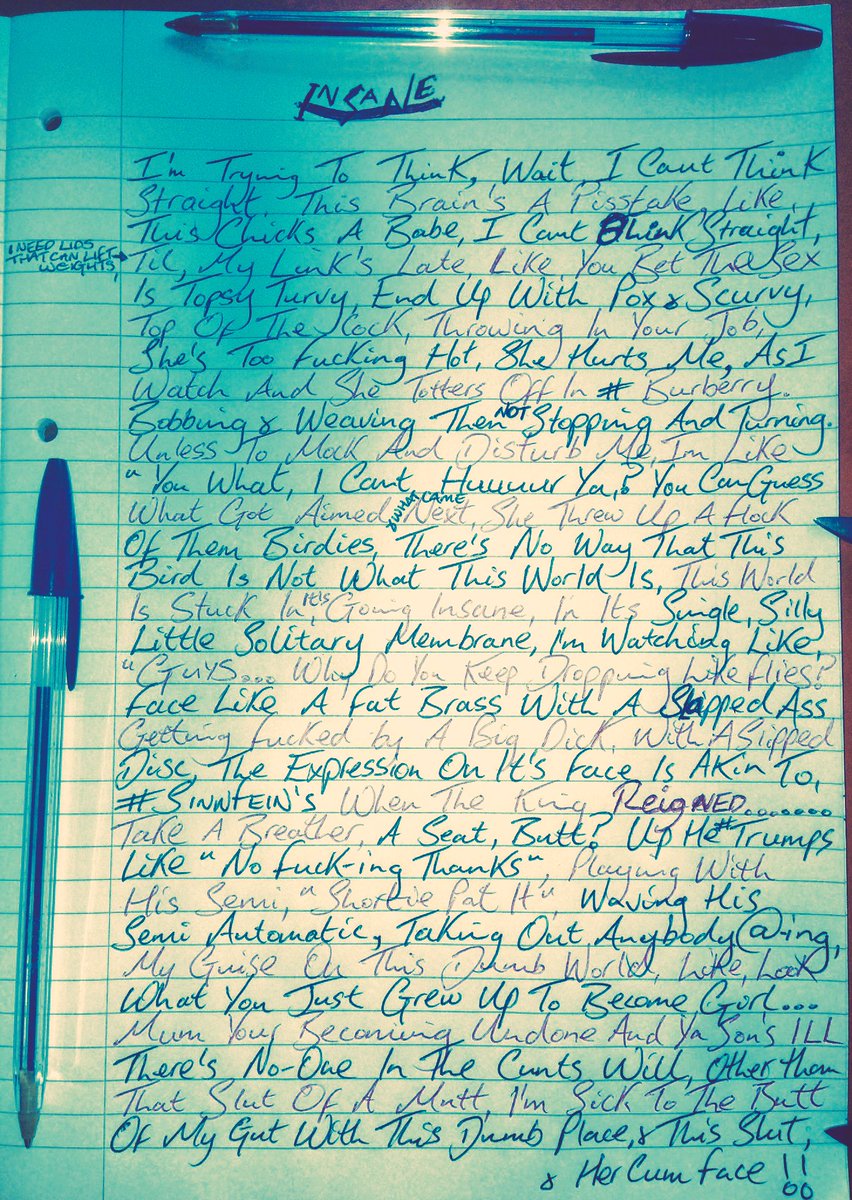 INSANE
I'm Trying To Think, Wait, I Cant Think
Straight, This Brain's A Pisstake, Like,
This Chicks A Babe, I Cant Think Straight,
I NEED LIDS
THAT CAN LIFT
WEIGHTS,
Til, My Link's Late, Like, You Bet The Sex
Is Topsy Turvy, End Up With Pox & Scurvy,
Top Of The Clock, Throwing In Your Job,
She's Too Fucking Hot, She Hurts Me, As I
Watch And She Totters Off In # Burberry.
Bobbing & Weaving Then NOT Stopping And Turning.
Unless To Mock And Disturb Me, Im Like
"You What, I Cant, Huuuur Ya,? You Can Guess
What Got Aimed & WHAT CAME Next, She Threw Up A Flock
Of Them Birdies, There's No Way That This
Bird Is Not What This World Is, This World
Is Stuck In, It's Going Insane, In Its Single, Silly
Little Solitary Membrane, I'm Watching Like,
"Guys... Why Do You Keep Dropping Like Flies?
Face Like A Fat Brass With A Slapped Ass
Getting Fucked by A Big Dick, With A Slipped
Disc, The Expression On It's Face Is Akin To,
#SINNFEIN'S When The King ReigNED........
Take A Breather, A Seat, Butt? Up He #Trumps
Like "No Fuck-ing Thanks", Playing With
His Semi, "Shortie Pat It", Waving His
Semi Automatic, Taking Out Anybody @-ing,
My Guise On This Dumb World, Like, Look
What You Just Grew Up To Become, Gurl...
Mum Your Becoming Undone And Ya Son's ILL
There's No-One In The Cunts Will, Other than
That Slut Of A Mutt, I'm Sick To The Butt
Of My Gut With This Dumb Place, & This Slut,
& Her Cum Face !!